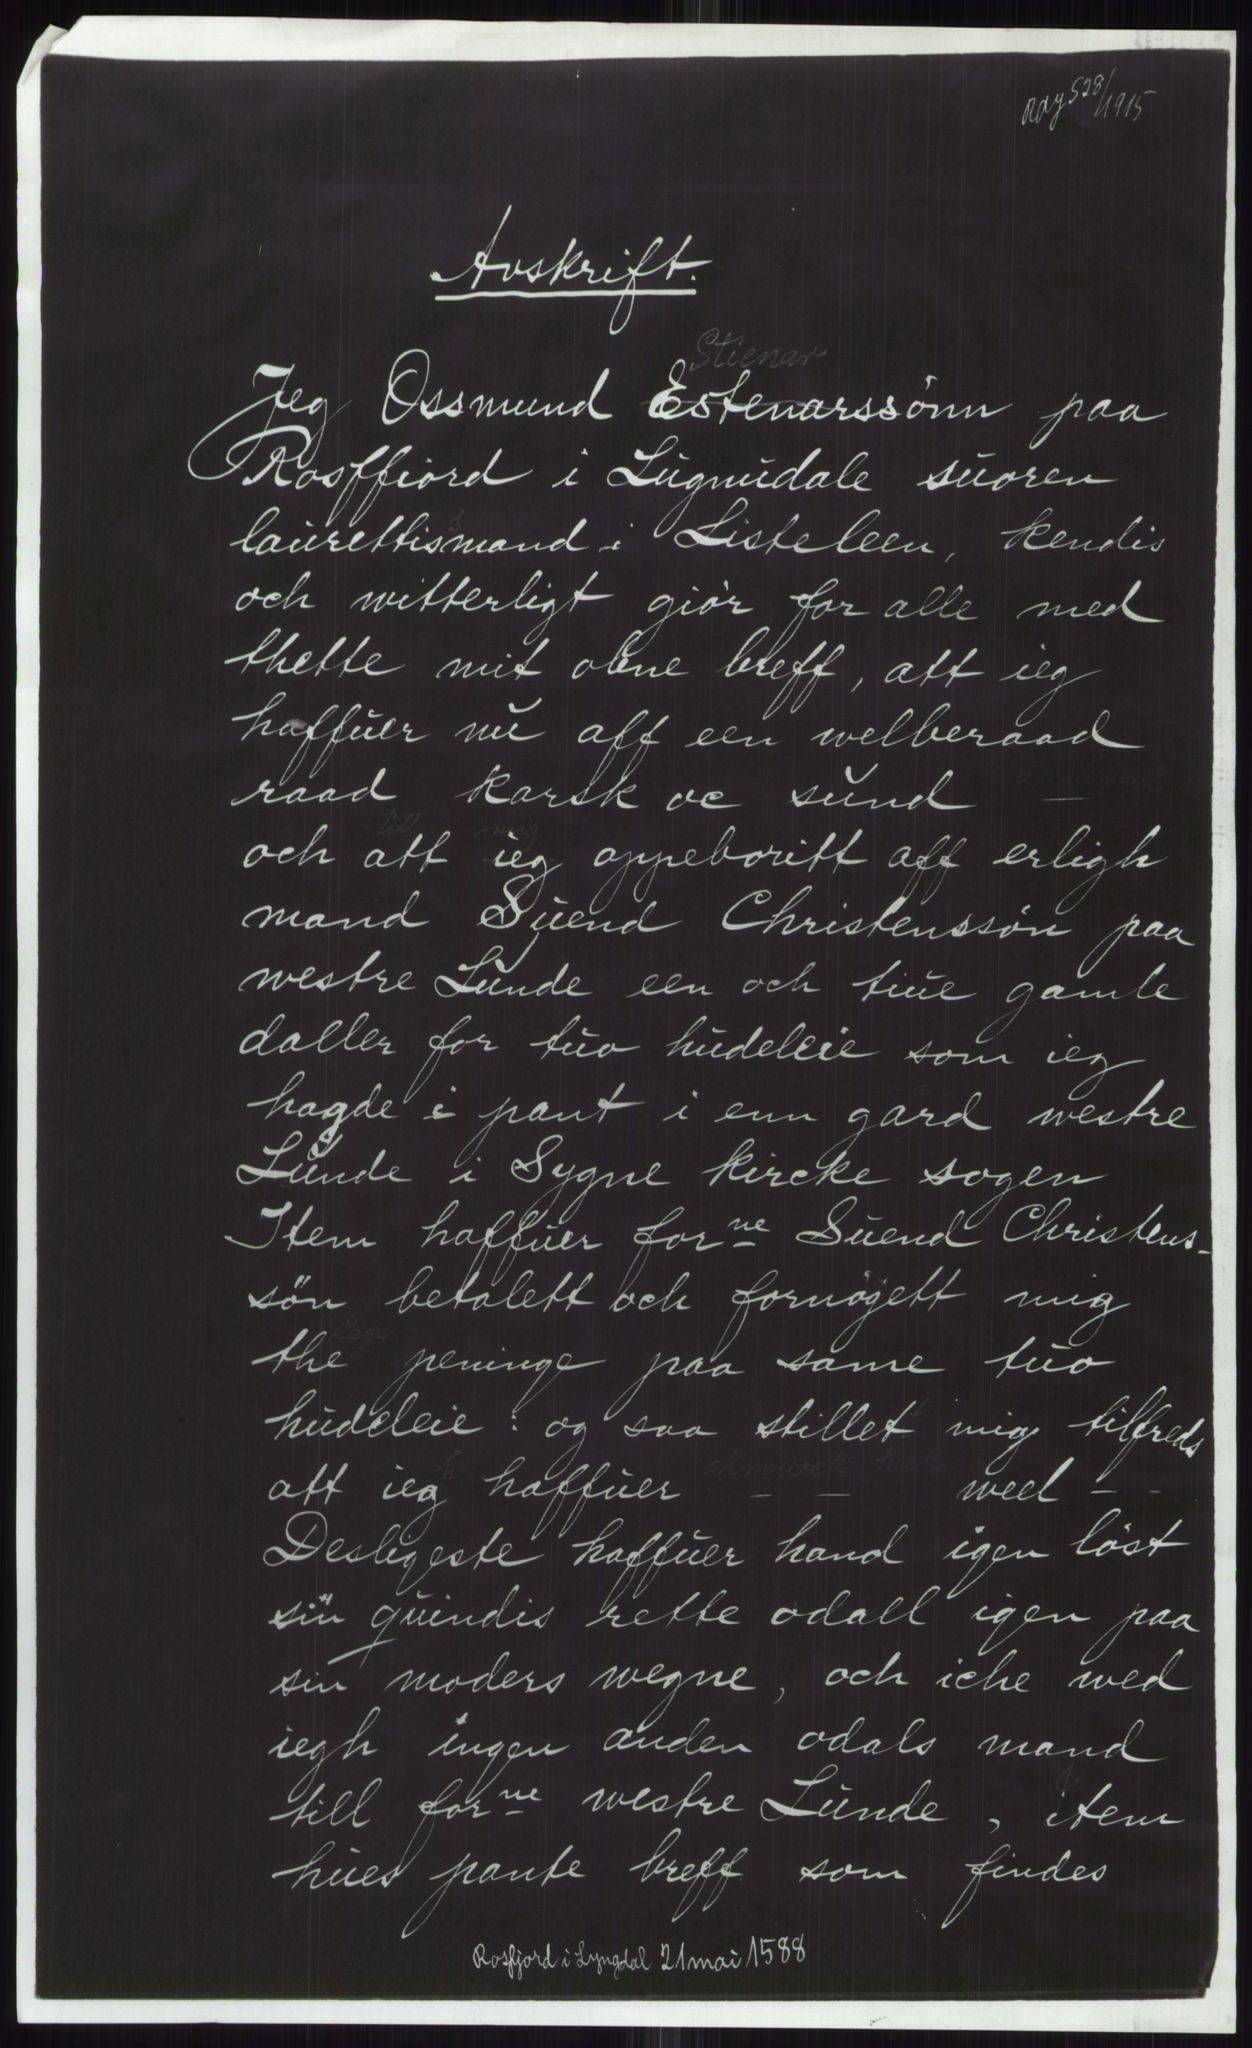 528/1915
Avskrift.
Stienar
Jeg Ossmund Estenarssönn paa
Rosffiord i Lúgnúdale súoren
laúrettismand i Listeleen, kendis
och witterligt giör for alle med
thette mit obne breff, att ieg
haffúer nú aff een welberaad
raad karsk oc súnd —
till mig
och att ieg oppeboritt aff erligh
mand Súend Christenssön paa
westre Lúnde een och tiúe gamle
daller for túo húdeleie som ieg
hagde i pant i enn gard westre
Lúnde i Sygne kircke sogen
Item haffúer forne Súend Christens-
sön betalett och fornöyett mig
the peninge paa same túo
húdeleie : og saa stillet mig tilfreds
att ieg haffúer — — weel - -
Desligeste haffúer hand igen löst
sin qúindis rette odall igen paa
sin moders wegne, och iche wed
iegh ingen anden odals mand
till forne westre Lúnde, item
húes pante breff som findes
Rosfjord i Lyngdal 21 mai 1588